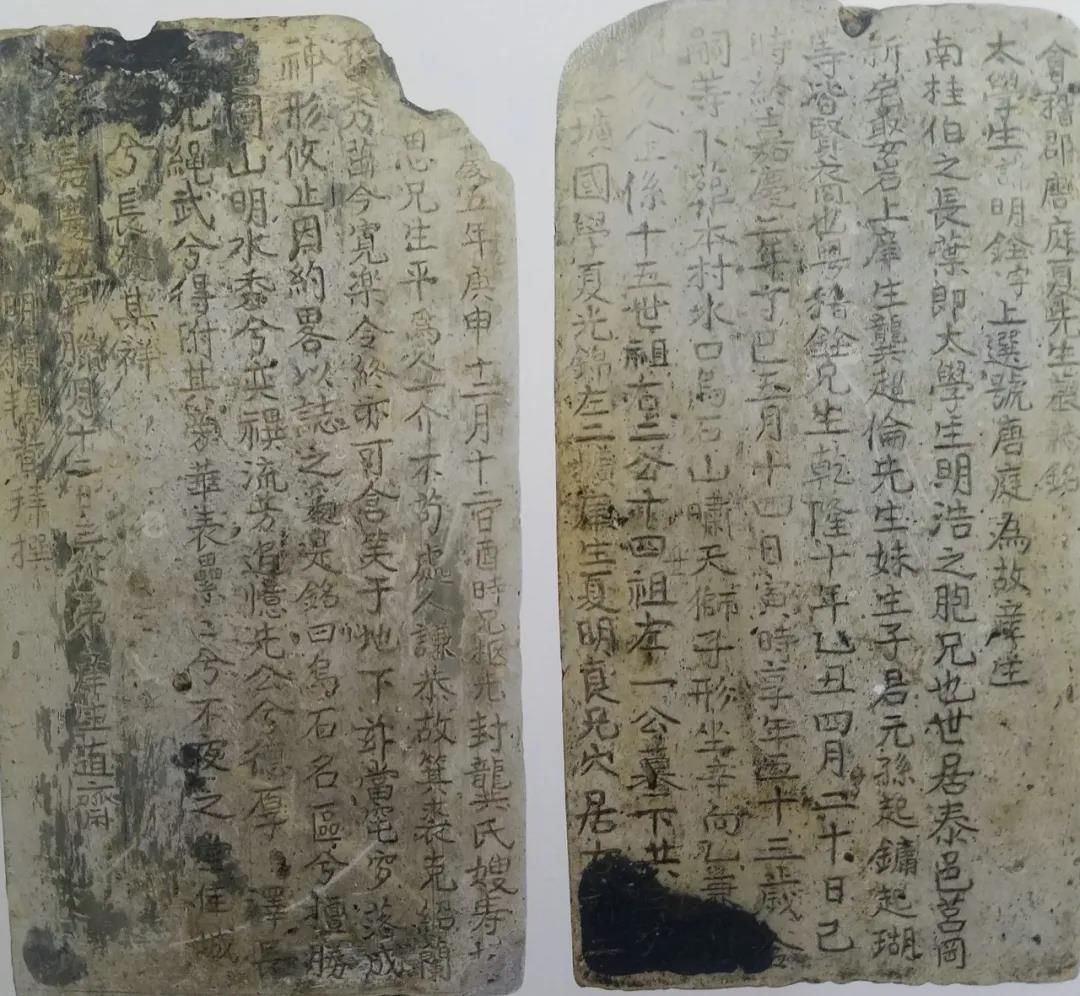 會稽郡唐庭夏先生墓誌銘
太學生諱明銓字上選號唐庭為故庠生
南桂伯之長葉即太學生明浩之胞兄也世居泰邑莒岡
新岩娶岩上庠生龔起倫先生妹生子君元孫起鏞起瑚
等皆賢人也粵稽銓兄生乾隆十年乙丑四月二十日巳
時於嘉慶二年丁巳五月十四日寅時享年五十三歲合
嗣等卜葬本村水口烏石山嘯天獅子形坐辛向乙兼
八上係十五世祖直三公十四祖左一公墓下共
一壙國學夏光錦左二壙庠生夏明良兄穴居
慶五年庚申十二月十二日酉時兄柩先封龔氏嫂壽
思兄生平為人一介不苟處人謙恭故箕裘克紹蘭
秀茁今寬樂令終亦可含笑于地下茲當窀穸落成
神形攸止因約畧以誌之爰是銘曰烏石名區兮擅勝
圖山明水秀兮並禩流芳追憶先公兮德厚澤長
兄繩武兮得附其榮華表壘壘兮不夜之佳城
兮長發其祥
嘉慶五年臘月十二日立從弟庠生直齋
明 頓首拜撰